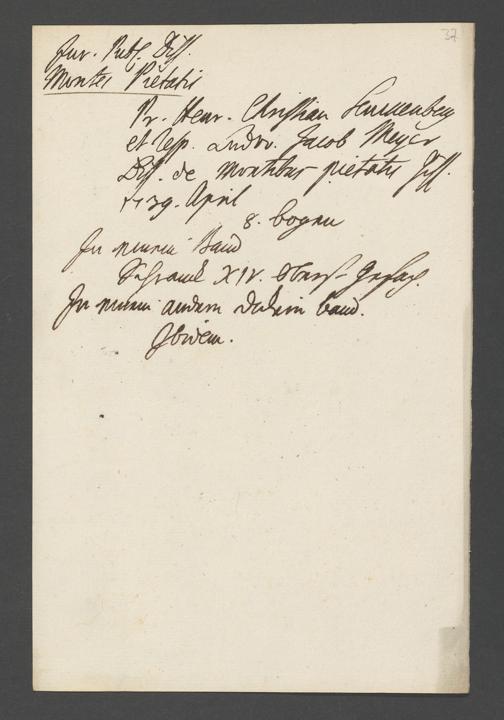 37
Jur. Publ. Diss.
Montes Pietatis
Pr. Henr. Christian Senckenberg
et resp. Ludov. Jacob Meyer
Diss. de montibus pietatis Giss.
1739. April
8. bogen
In einem Band
Schranck XIV. oberst Gefach.
In einem andern dickern band.
Ibidem.